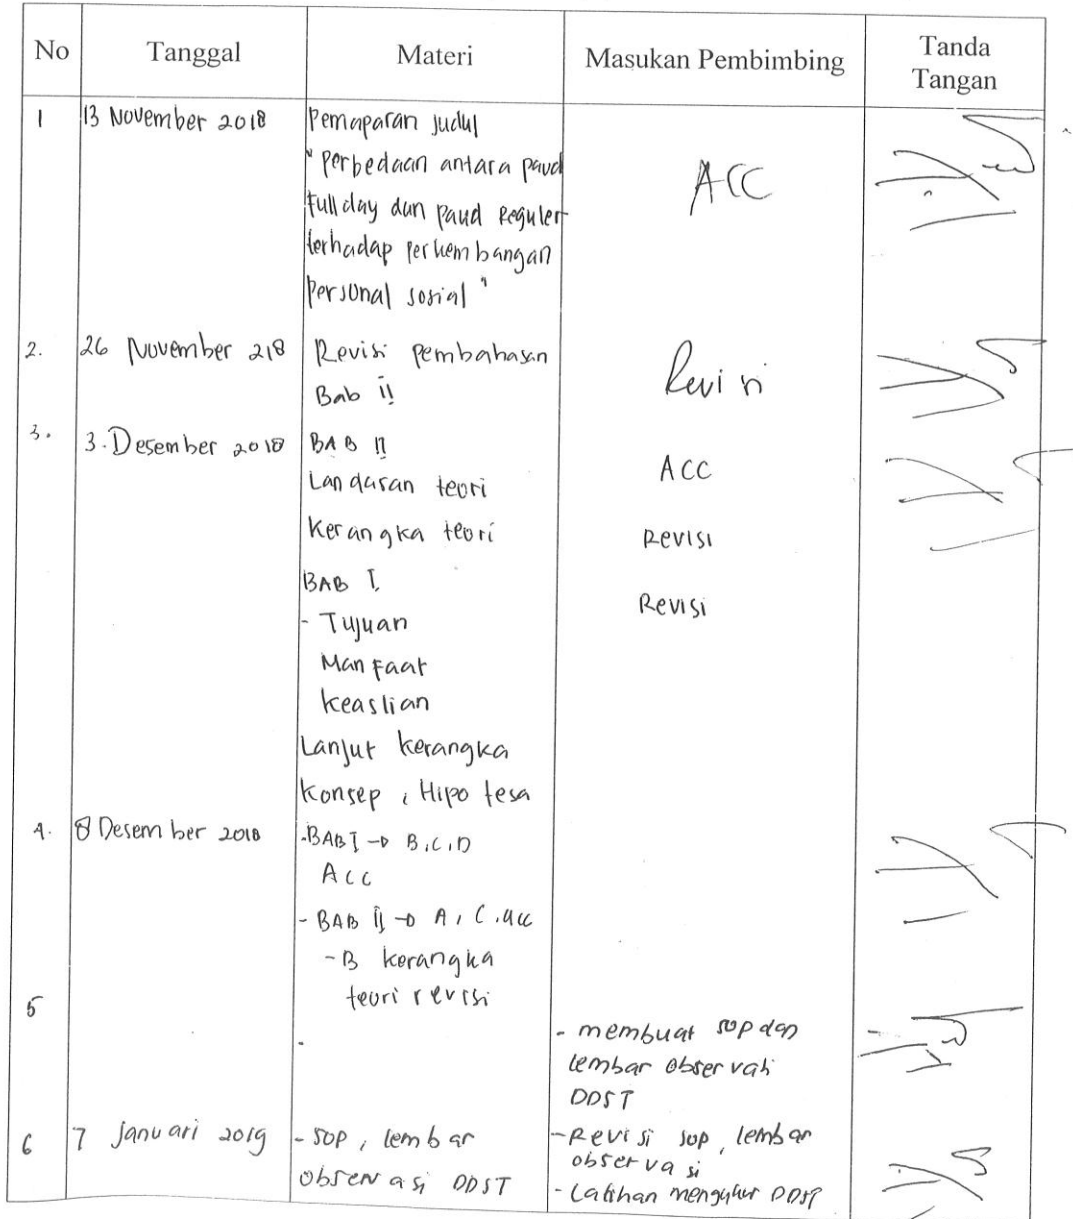 No Tanggal Materi Masukan Pembimbing Tanda
Tangan
1 13 November 2018 Pemaparan judul
" Perbedaan antara paud
full day dan paud Reguler
terhadap perkembangan
Personal sosial "
ACC
2. 26 November 218 Revisi pembahasan
Bab II
Revisi
3. 3. Desember 2018 BAB II
Landasan teori ACC
Kerangka teori Revisi
BAB I.
Revisi
- Tujuan
Manfaat
keaslian
Lanjut kerangka
Konsep , Hipotesa
4. 8 Desember 2018 -BAB I → B,C,D
ACC
- BAB II → A, C. acc
- B kerangka
teori revisi
5
- membuat SOP dan
lembar observasi
DDST
6 7 Januari 2019 - SOP , lembar
observasi DDST
- Revisi SOP, lembar
observasi
- Latihan mengukur DDST